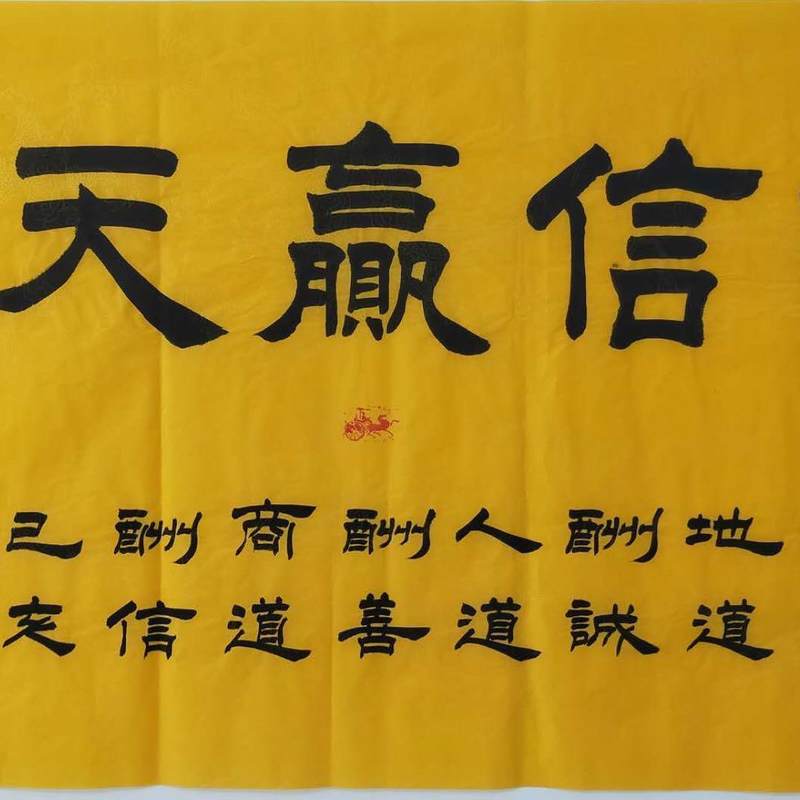 信贏天
地道
酬誠
人道
酬善
商道
酬信
己亥